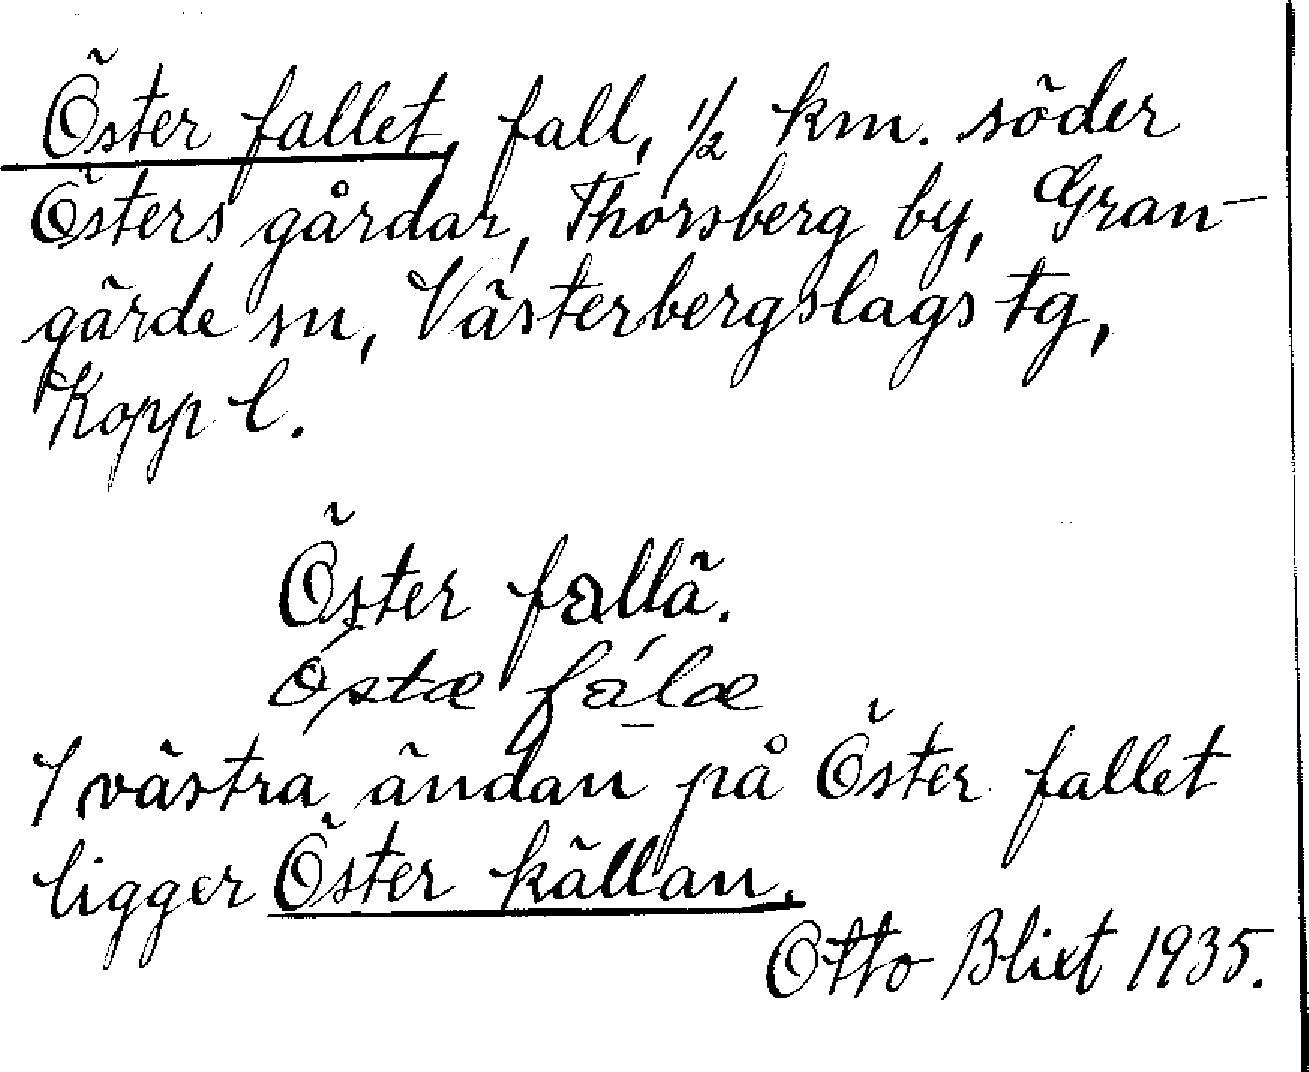 Öster fallet, fall, ½ km. söder
Östers gårdar, Thorsberg by, Gran-
gärde sn, Västerbergslags tg,
Kopp l.
Öster fallä.
I västra ändan på Öster fallet
ligger Öster källan.
Otto Blixt 1935.